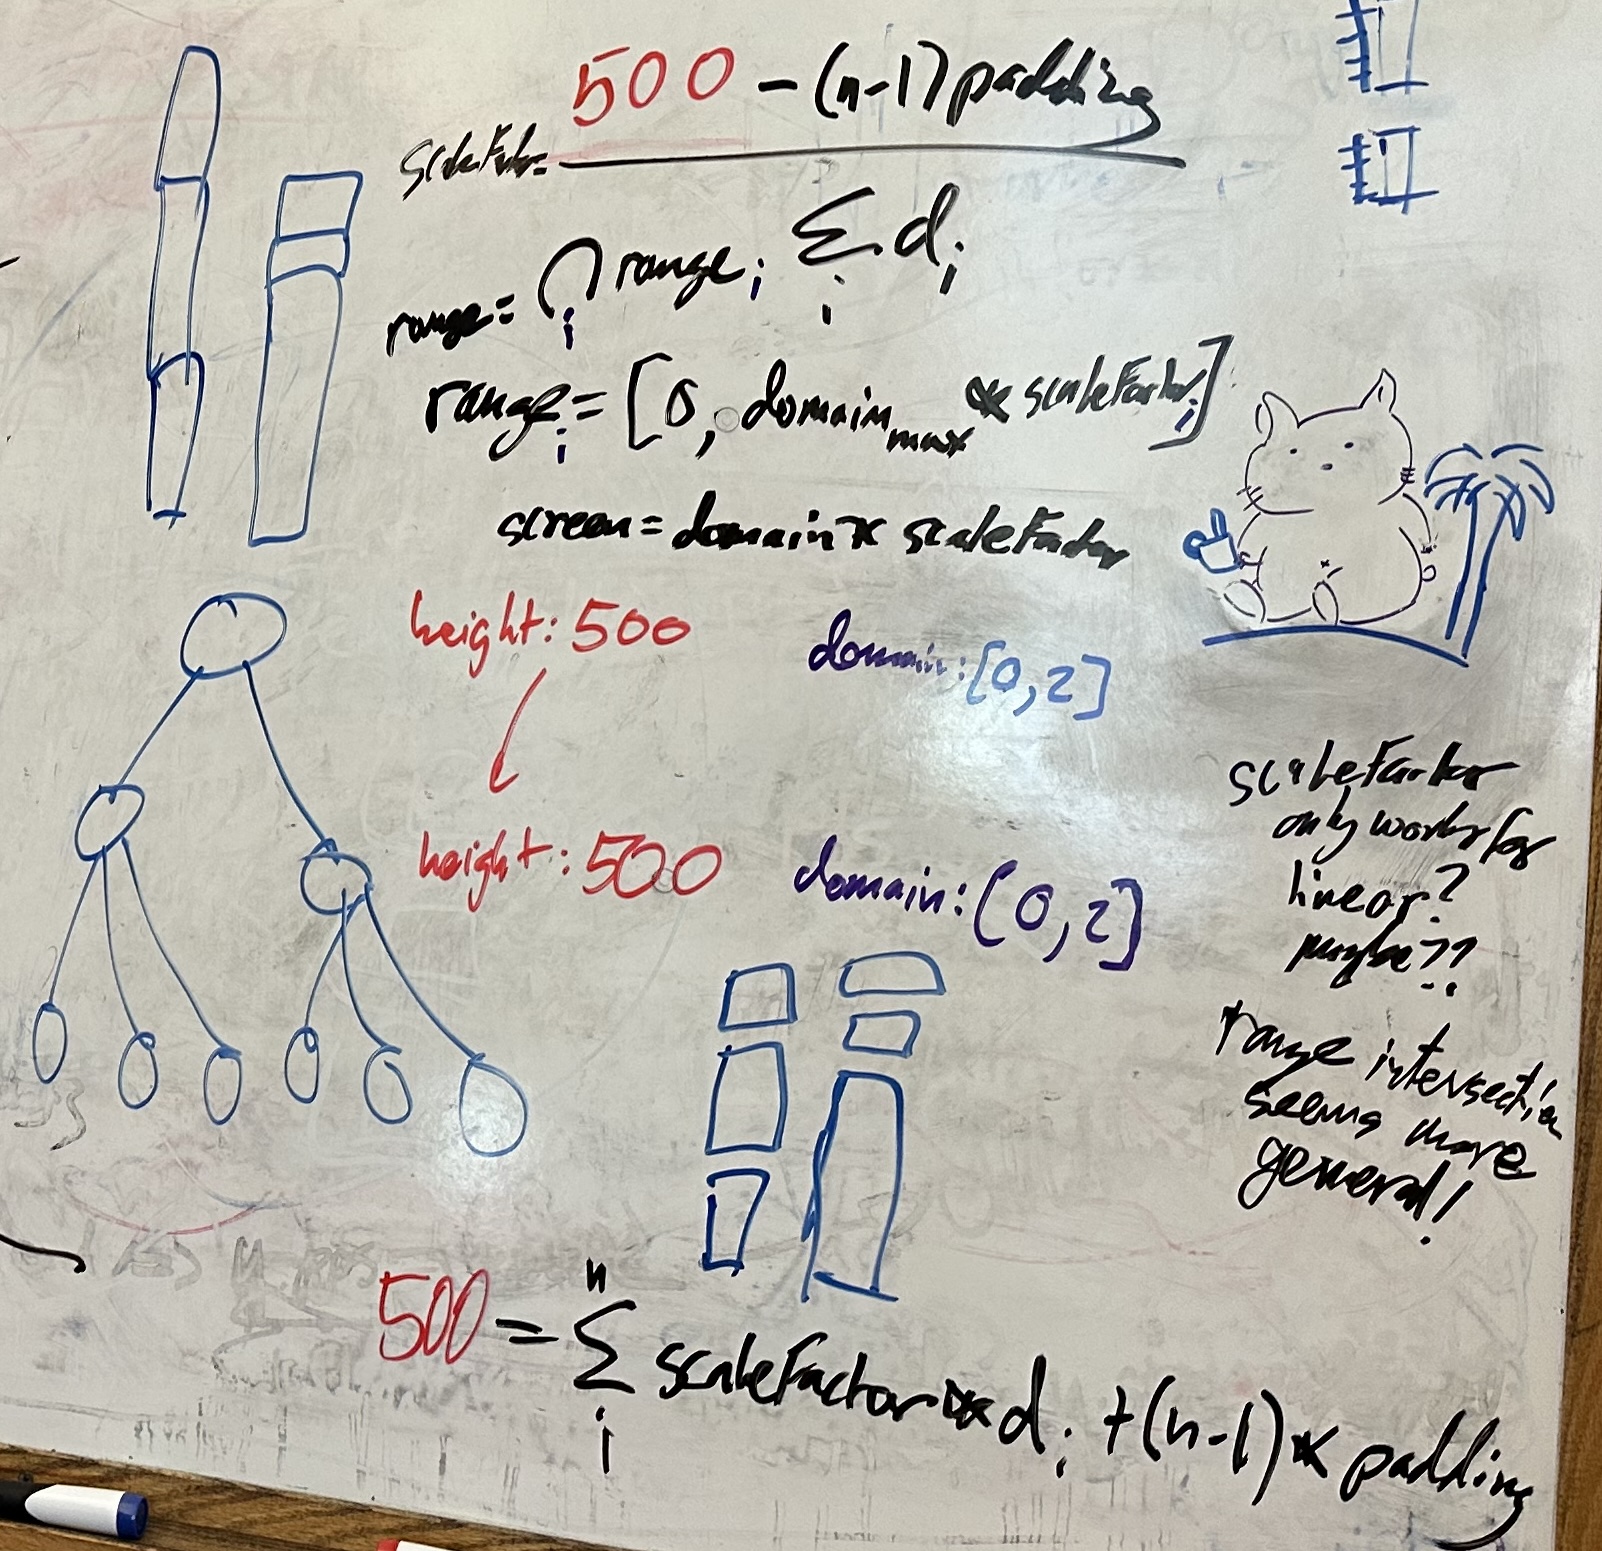 500 - (n-1) padding
scaleFactor =
Σ_i d_i
range = ∩_i range_i
range_i = [0, domain_max * scaleFactor_i]
screen = domain * scaleFactor
height: 500
domain: [0, 2]
height: 500
domain: [0, 2]
scaleFactor
only works for
linear?
maybe??
range intersection
seems more
general!
500 = Σ_i^n scaleFactor * d_i + (n-1) * padding